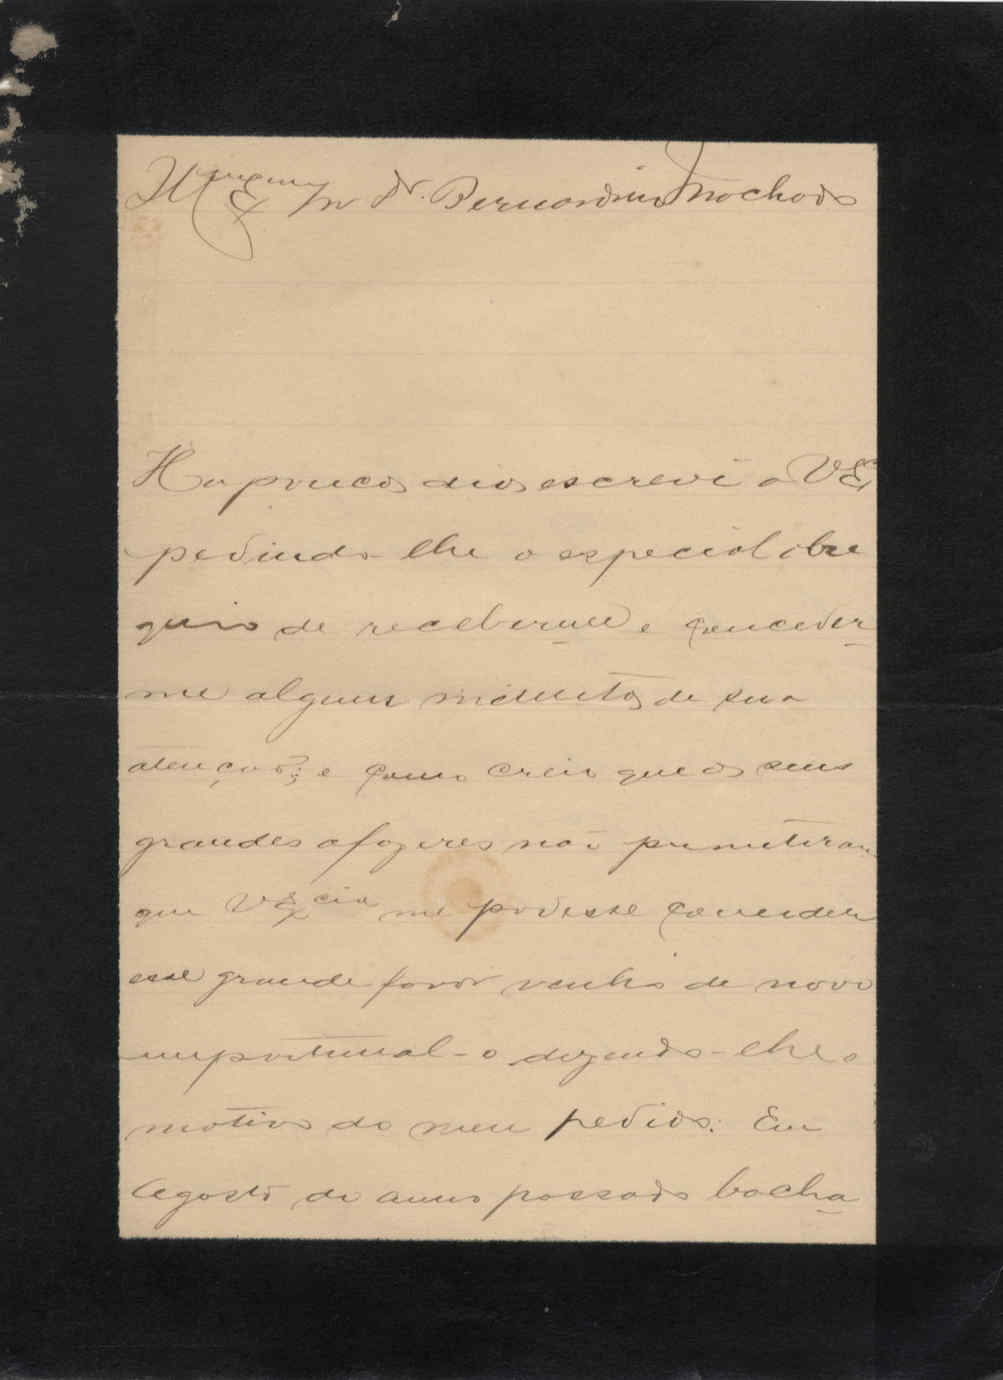 Ill.mo Ex.mo Snr Dr. Bernardino Machado
Ha poucos dias escrevi a V Ex
pedindo-lhe o especial obse
quio de receber-me e conceder-
me alguns minutos de sua
atenção; e como creio que os seus
grandes afazeres não permitiram
que V Ex.cia me podesse conceder
esse grande favor venho de novo
importunal-o dizendo-lhe o
motivo do meu pedido. Em
Agosto do anno passado bacha